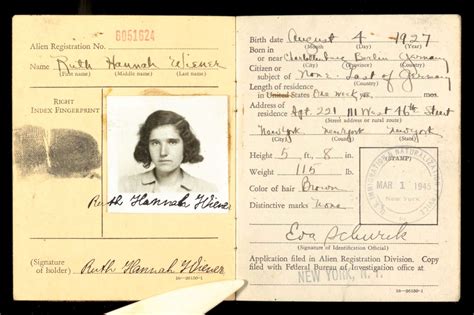 6051624
Alien Registration No.
Name Ruth Hannah Wiener
(First name) (Middle name) (Last name)
RIGHT
INDEX FINGERPRINT
Ruth Hannah Wiener
(Signature
of holder) Ruth Hannah Wiener
16—26150-1
Birth date August 4 1927
(Month) (Day) (Year)
Born in
or near Charlottenburg Berlin Germany
(City) (Province) (Country)
Citizen or
subject of None - Last of Germany
(Country)
Length of residence
in United States One week yrs. mos.
Address of
residence Apt. 221 111 West 46th Street
(Street address or rural route)
New York New York New York
(City) (County) (State)
Height 5 ft., 8 in.
Weight 115 lb.
Color of hair Brown
Distinctive marks None
(STAMP)
IMMIGRATION & NATURALIZATION
MAR 1 1945
New York
Eva Schurek
(Signature of Identification Official)
Application filed in Alien Registration Division. Copy
filed with Federal Bureau of Investigation office at
NEW YORK, N. Y.
16—26150-1